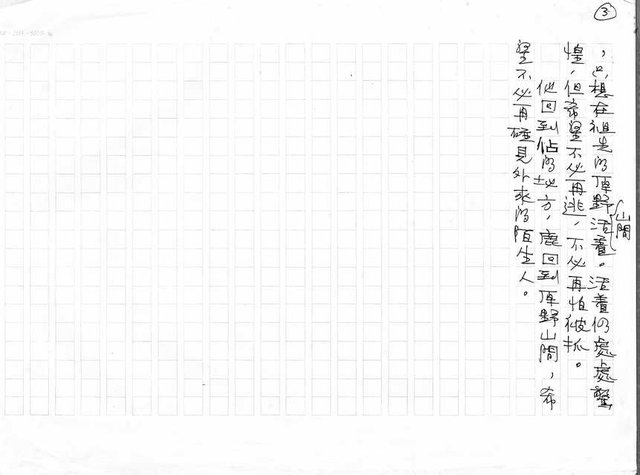 ③
，只想在祖先的原野活著。活著仍處處驚
山間
惶，但希望不必再逃，不必再怕被抓。
他回到他的地方，鹿回到原野山間，希
望不必再碰見外來的陌生人。